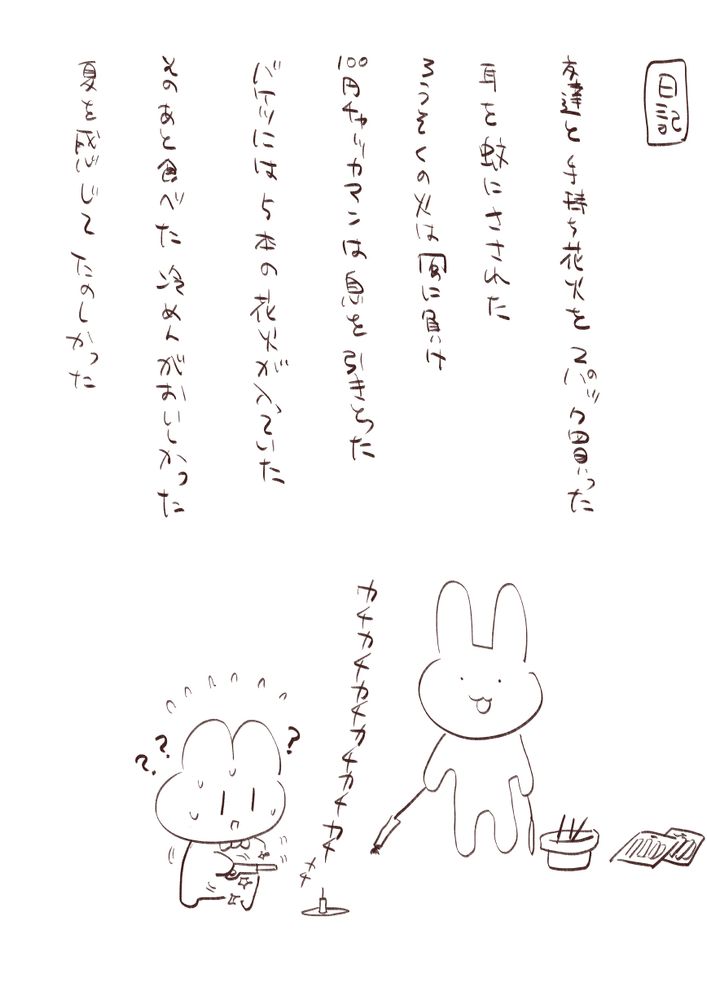 日記
友達と手持ち花火を2パック買った
耳を蚊にさされた
ろうそくの火は風に負け
100円チャッカマンは息を引きとった
バケツには5本の花火が入っていた
そのあと食べた冷めんがおいしかった
夏を感じてたのしかった
カチカチカチカチカチカチカチ
???